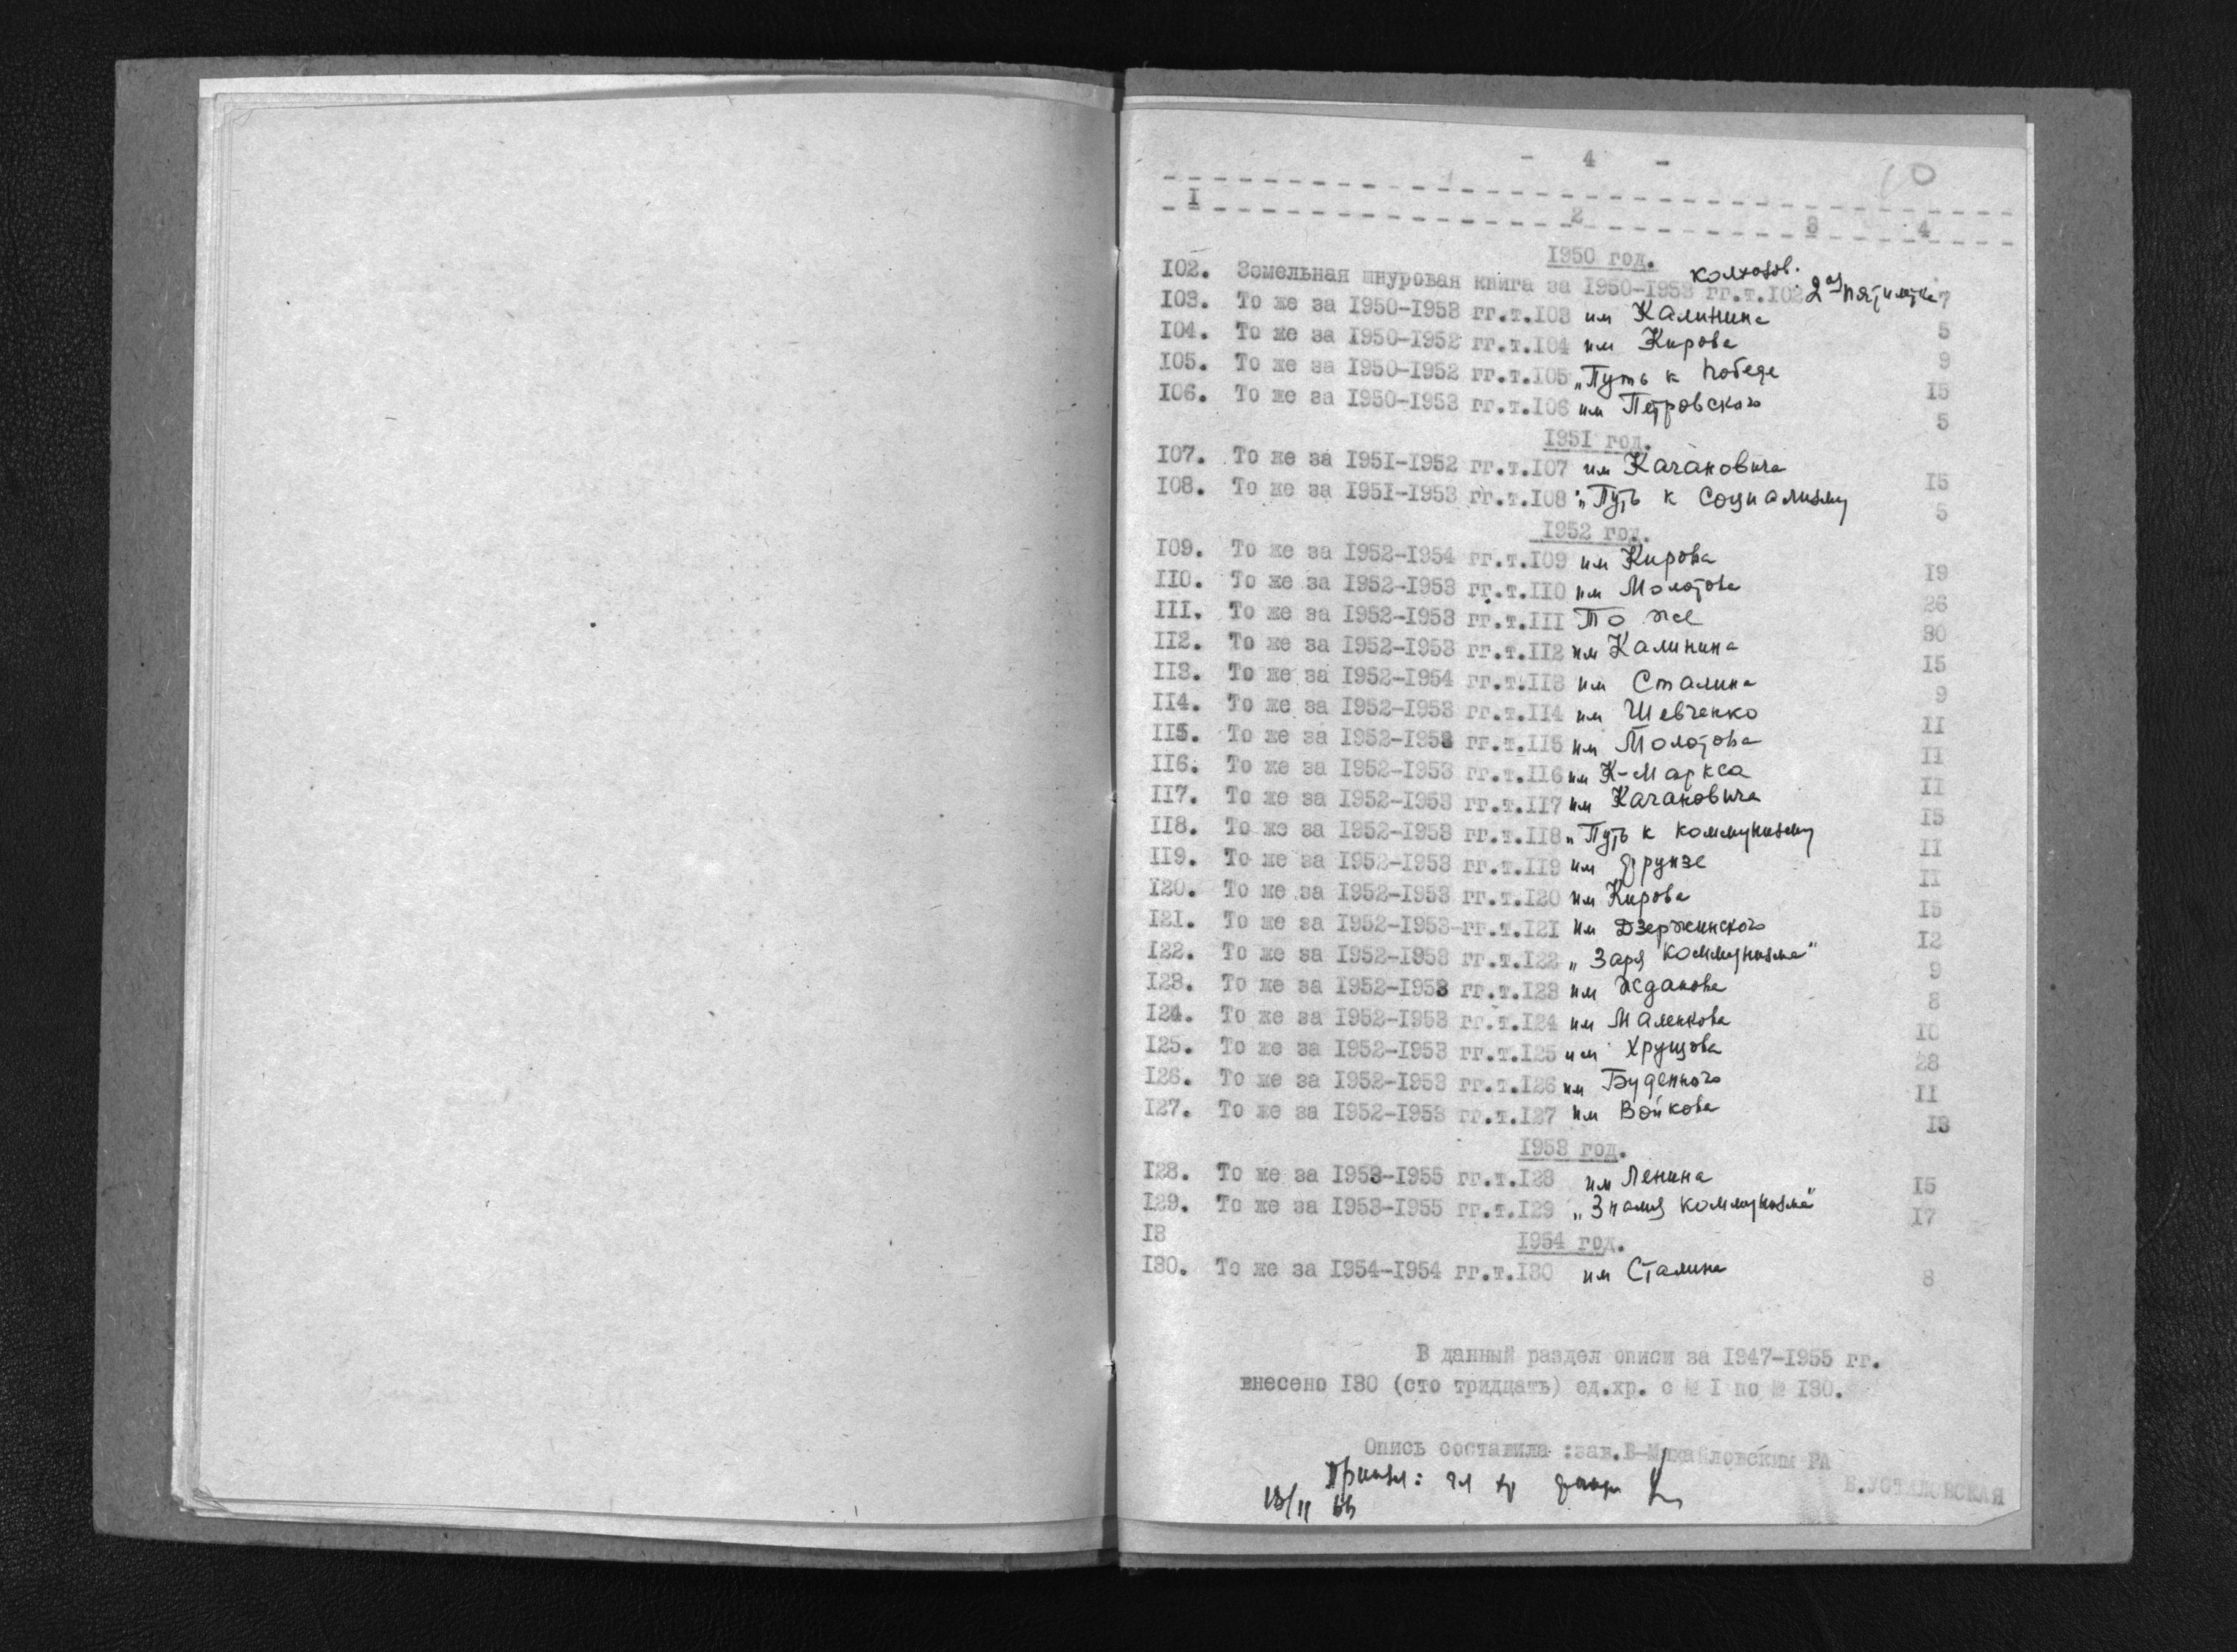 - 4 -
10
I 2 3 4
1950 год.
колхозов.
I02. Земельная шнуровая книга за I950-I953 гг.т.I02 2ая пятилетка 7
I03. То же за I950-I953 гг.т.I03 им Калинина 5
I04. То же за I950-I952 гг.т.I04 им Кирова 9
I05. То же за I950-I952 гг.т.I05 „Путь к победе I5
I06. То же за I950-I953 гг.т.I06 им Петровского 5
I95I год.
I07. То же за I95I-I952 гг.т.I07 им Кагановича I5
I08. То же за I95I-I953 гг.т.I08 „Путь к социализму 5
I952 год.
I09. То же за I952-I954 гг.т.I09 им Кирова I9
II0. То же за I952-I953 гг.т.II0 им Молотова 26
III. То же за I952-I953 гг.т.III То же 30
II2. То же за I952-I953 гг.т.II2 им Калинина I5
II3. То же за I952-I954 гг.т.II3 им Сталина 9
II4. То же за I952-I953 гг.т.II4 им Шевченко II
II5. То же за I952-I953 гг.т.II5 им Молотова II
II6. То же за I952-I953 гг.т.II6 им К-Маркса II
II7. То же за I952-I953 гг.т.II7 им Кагановича I5
II8. То же за I952-I953 гг.т.II8 „Путь к коммунизму II
II9. То же за I952-I953 гг.т.II9 им Фрунзе II
I20. То же за I952-I953 гг.т.I20 им Кирова I5
I2I. То же за I952-I953-гг.т.I2I им Дзержинского I2
I22. То же за I952-I953 гг.т.I22 „Заря коммунизма" 9
I23. То же за I952-I953 гг.т.I23 им Жданова 8
I24. То же за I952-I953 гг.т.I24 им Маленкова I0
I25. То же за I952-I953 гг.т.I25 им Хрущова 28
I26. То же за I952-I953 гг.т.I26 им Буденного II
I27. То же за I952-I953 гг.т.I27 им Войкова I3
I953 год.
I28. То же за I953-I955 гг.т.I28 им Ленина I5
I29. То же за I953-I955 гг.т.I29 „Знамя коммунизма" I7
I3
I954 год.
I30. То же за I954-I954 гг.т.I30 им Сталина 8
В данный раздел описи за I947-I955 гг.
внесено I30 (сто тридцать) ед.хр. с № I по № I30.
Опись составила :зав.В-Михайловским РА